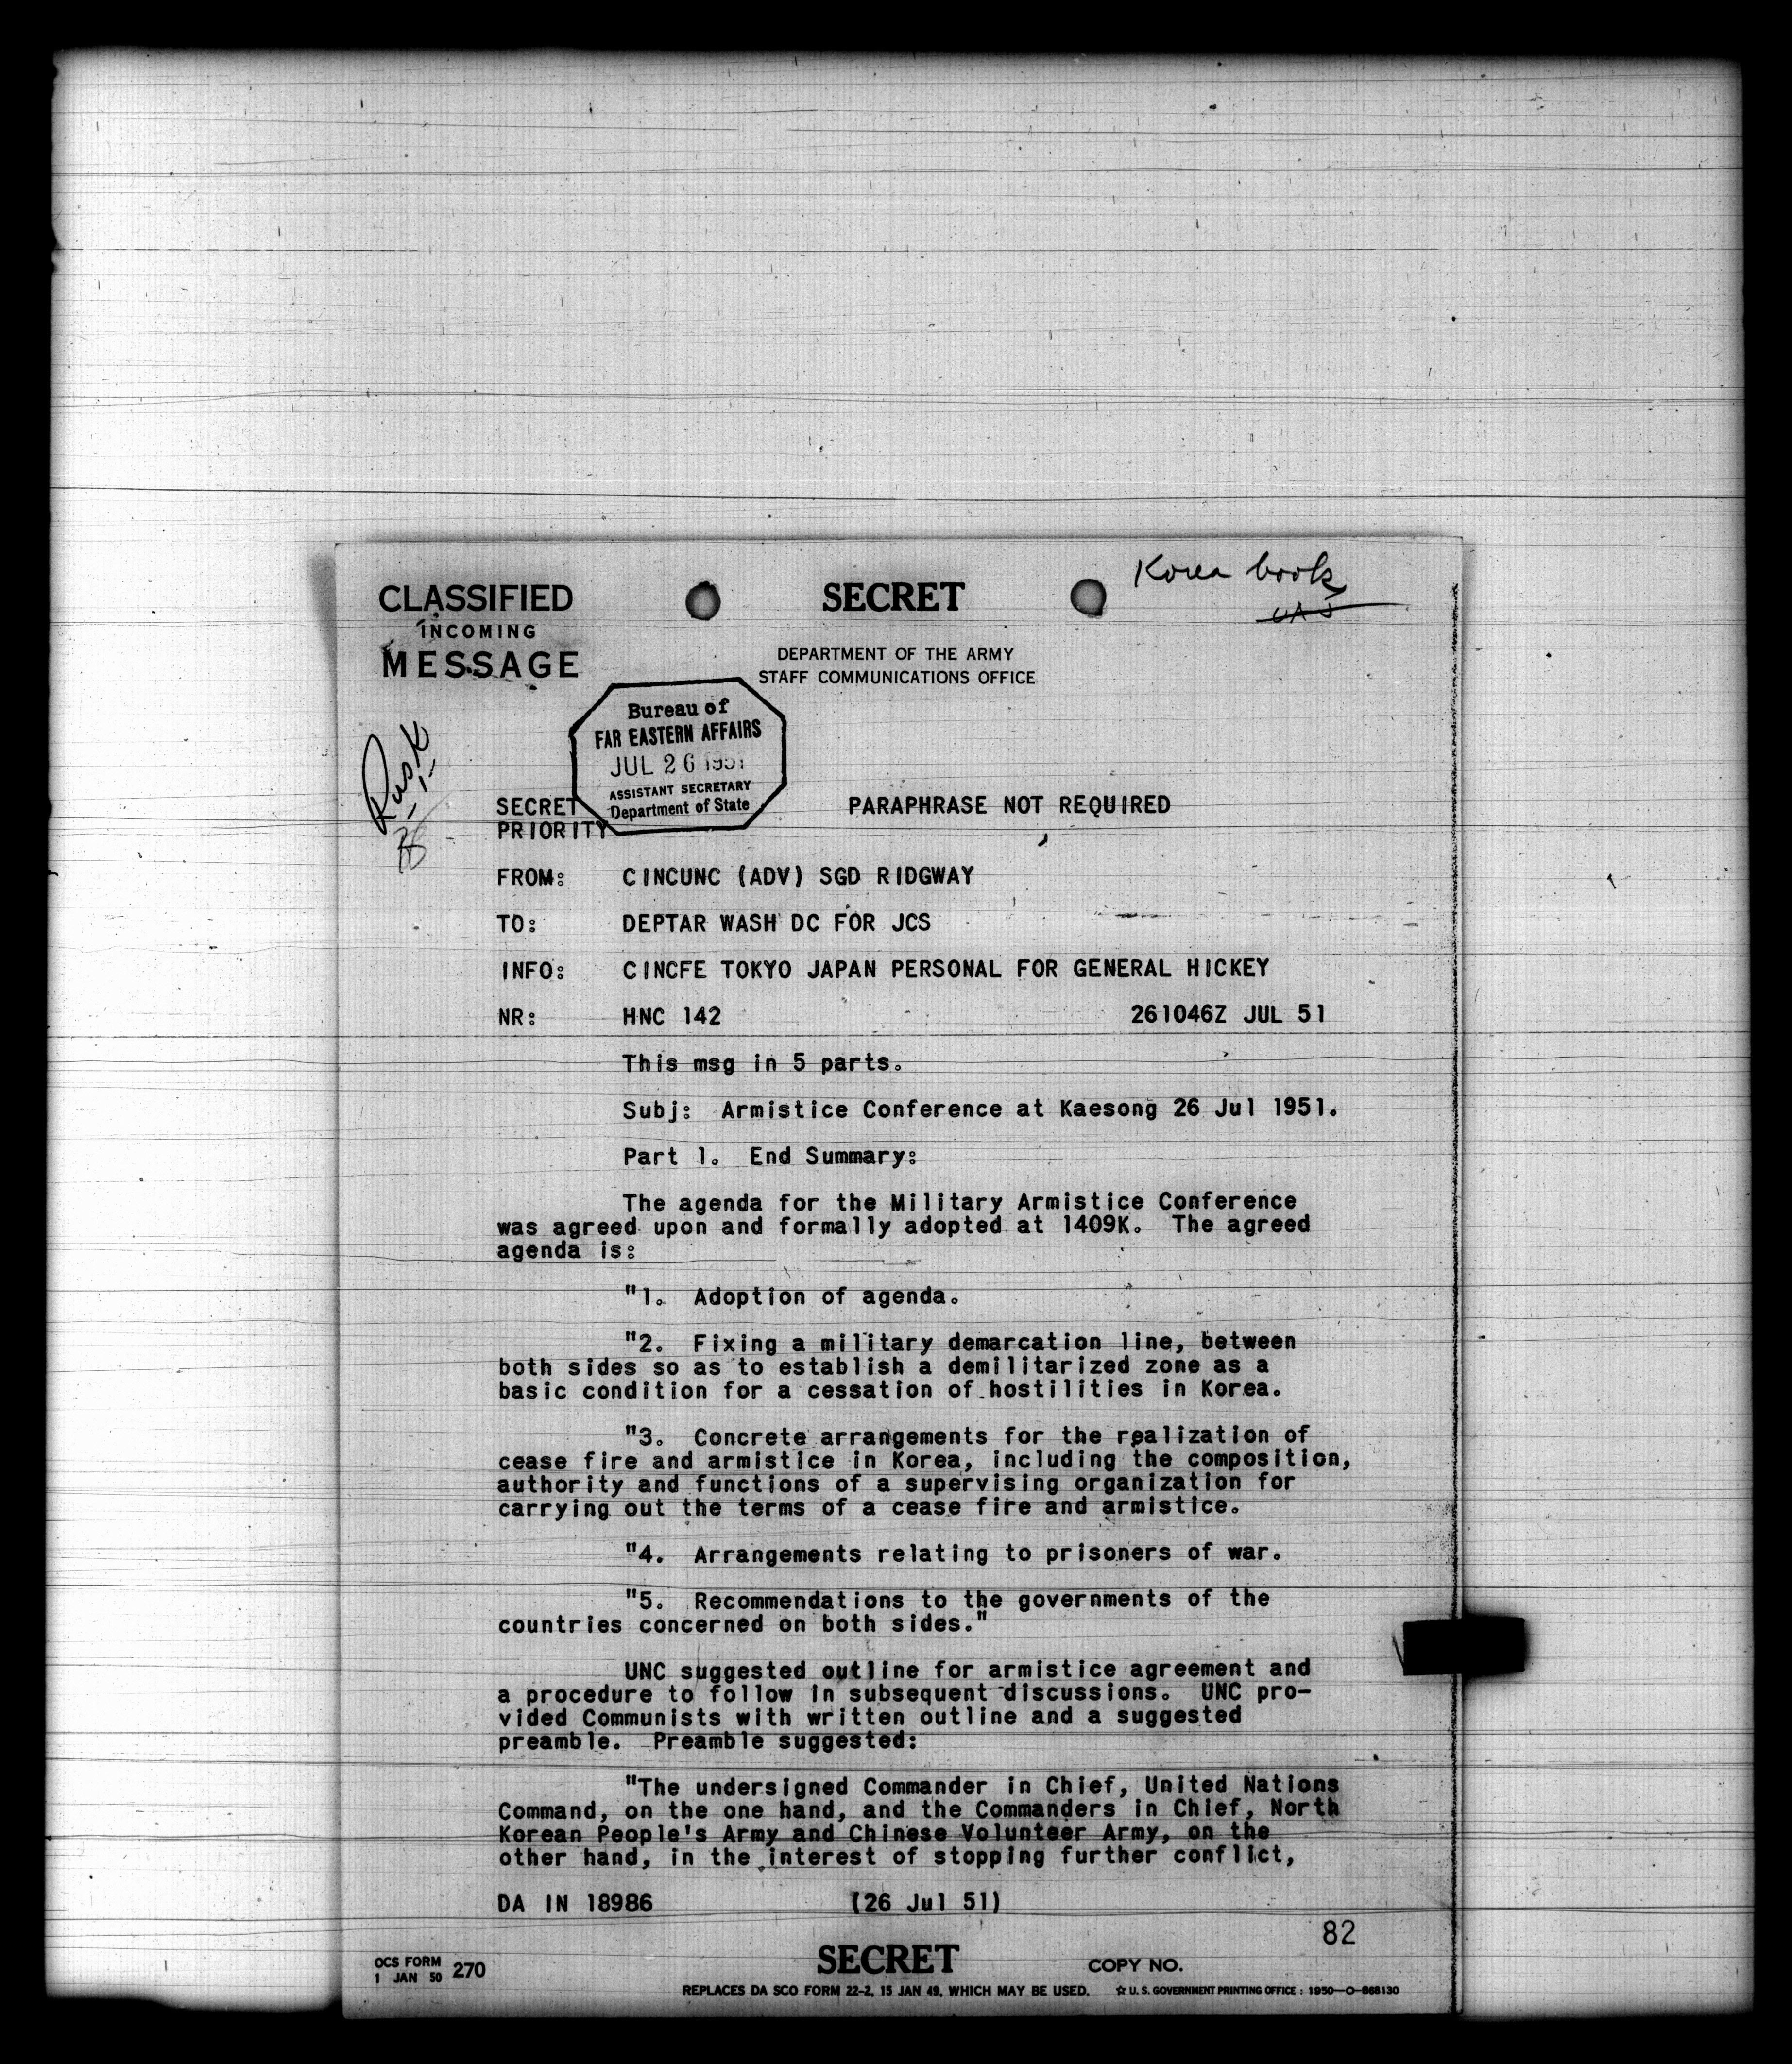 Korea book
CLASSIFIED
INCOMING
MESSAGE
SECRET
DEPARTMENT OF THE ARMY
STAFF COMMUNICATIONS OFFICE
Rusk
Bureau of
FAR EASTERN AFFAIRS
JUL 26 1951
ASSISTANT SECRETARY
Department of State
SECRET PARAPHRASE NOT REQUIRED
PRIORITY
FROM: CINCUNC (ADV) SGD RIDGWAY
TO: DEPTAR WASH DC FOR JCS
INFO: CINCFE TOKYO JAPAN PERSONAL FOR GENERAL HICKEY
NR: HNC 142 261046Z JUL 51
This msg in 5 parts.
Subj: Armistice Conference at Kaesong 26 Jul 1951.
Part 1. End Summary:
The agenda for the Military Armistice Conference
was agreed upon and formally adopted at 1409K. The agreed
agenda is:
"1. Adoption of agenda.
"2. Fixing a military demarcation line, between
both sides so as to establish a demilitarized zone as a
basic condition for a cessation of hostilities in Korea.
"3. Concrete arrangements for the realization of
cease fire and armistice in Korea, including the composition,
authority and functions of a supervising organization for
carrying out the terms of a cease fire and armistice.
"4. Arrangements relating to prisoners of war.
"5. Recommendations to the governments of the
countries concerned on both sides."
UNC suggested outline for armistice agreement and
a procedure to follow in subsequent discussions. UNC pro-
vided Communists with written outline and a suggested
preamble. Preamble suggested:
"The undersigned Commander in Chief, United Nations
Command, on the one hand, and the Commanders in Chief, North
Korean People's Army and Chinese Volunteer Army, on the
other hand, in the interest of stopping further conflict,
DA IN 18986 (26 Jul 51)
82
OCS FORM 270
1 JAN 50
SECRET
COPY NO.
REPLACES DA SCO FORM 22-2, 15 JAN 49, WHICH MAY BE USED. ☆ U. S. GOVERNMENT PRINTING OFFICE : 1950—O-868130